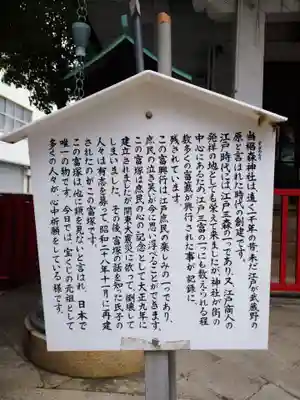 当椙森神社は、遠く一千年の昔、未だ江戸が武蔵野の
原と言はれた時代の創建です。
江戸時代には、江戸三森の一つであり、又、江戸商人の
発祥の地としても栄えて来ましたが、神社が街の
中心にあるため、江戸三富の一にも数えられる程
数多くの富籤が興行された事が記録に
残されています。
この富興行は、江戸庶民の楽しみの一つであり、
庶民の泣き笑いが今に思い浮べることができます。
この富塚は庶民の心の記念として、大正九年に
建立されましたが関東大震災に依って倒壊して
しまいました。その後、富塚の話を知った氏子の
人々は有志を募って、昭和二十八年十一月に再建
されたのがこの富塚です。
この富塚は他に類を見ないと言はれ、日本で
唯一の物です。今日では、宝くじの元祖として
多くの人々が、心中祈願をしている様です。